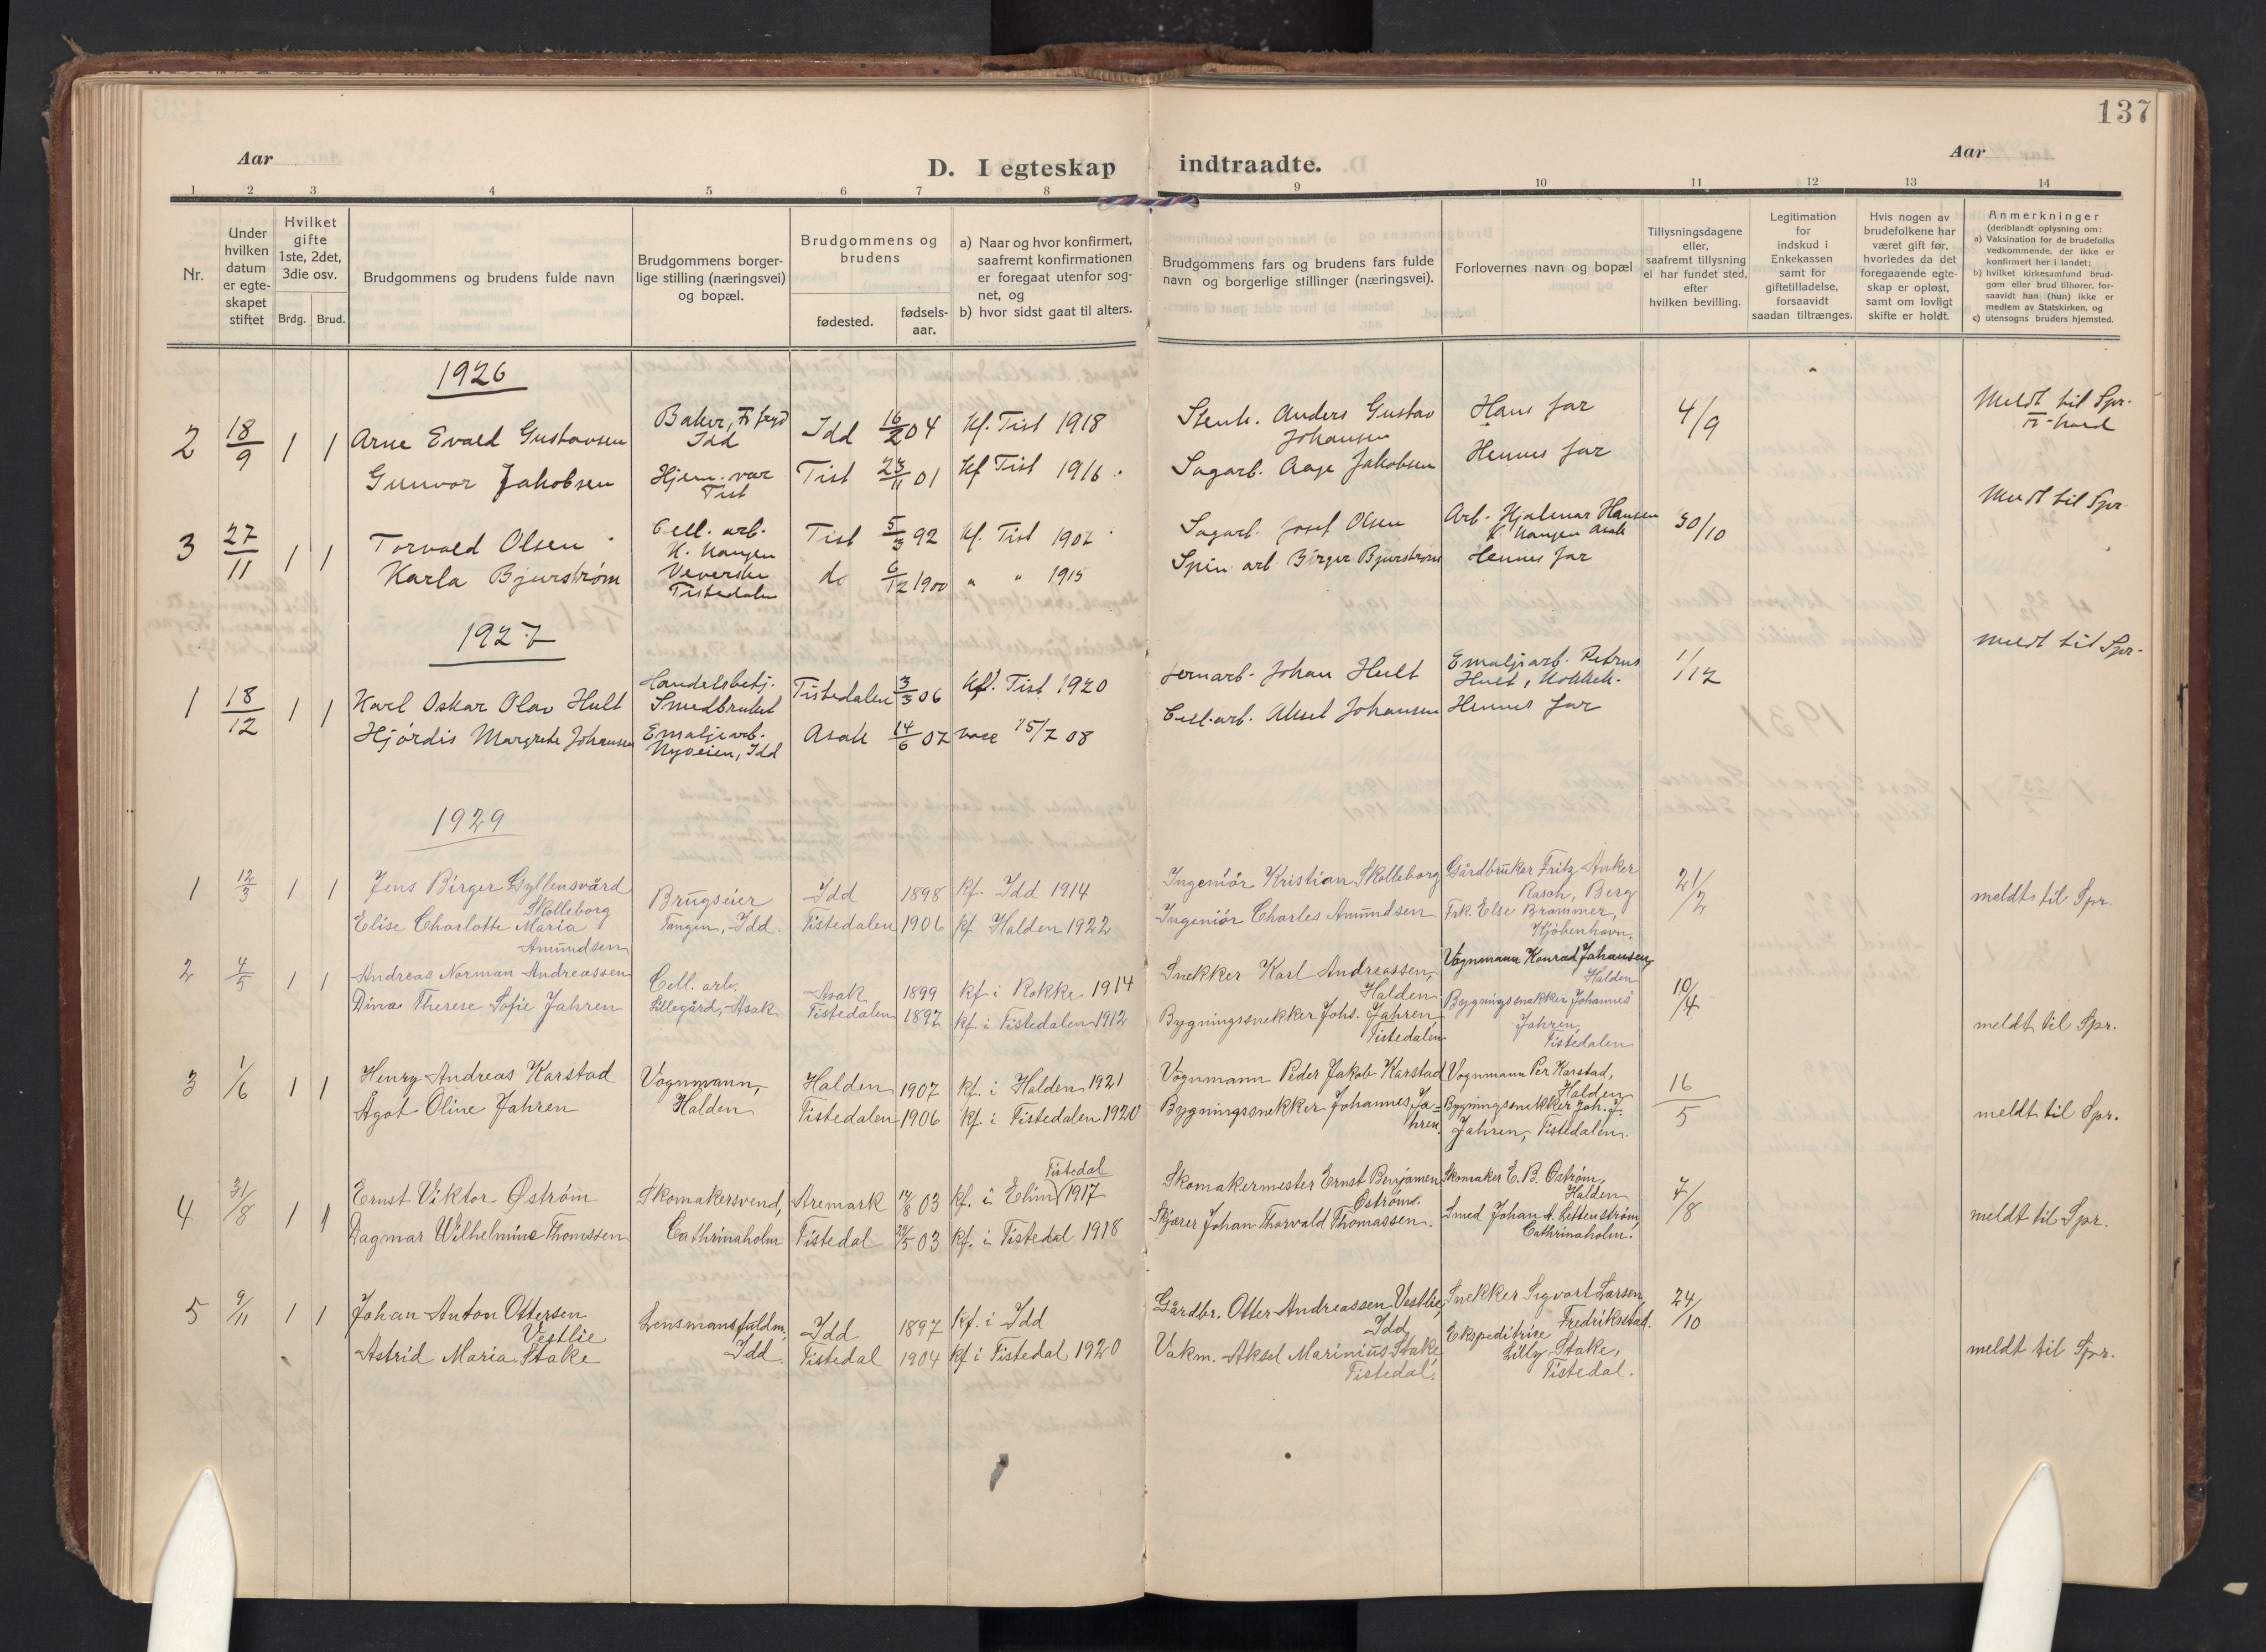 137
Aar
D. I egteskap indtraadte.
Aar
1 2 3 4 5 6 7 8 9 10 11 12 13 14
Nr.
Under hvilken datum er egte-skapet stiftet
Hvilket gifte 1ste, 2det, 3die osv.
Brdg. Brud.
Brudgommens og brudens fulde navn
Brudgommens borger-lige stilling (næringsvei) og bopæl.
Brudgommens og brudens
fødested.
fødsels-aar.
a) Naar og hvor konfirmert, saafremt konfirmationen er foregaat utenfor sog-net, og
b) hvor sidst gaat til alters.
Brudgommens fars og brudens fars fulde navn og borgerlige stillinger (næringsvei).
Forlovernes navn og bopæl
Tillysningsdagene eller, saafremt tillysning ei har fundet sted, efter hvilken bevilling.
Legitimation for indskud i Enkekassen samt for giftetilladelse, forsaavidt saadan tiltrænges.
Hvis nogen av brudefolkene har været gift før, hvorledes da det foregaaende egte-skap er opløst, samt om lovligt skifte er holdt.
Anmerkninger (deriblandt oplysning om:
a) Vaksination for de brudefolks vedkommende, der ikke er konfirmert her i landet;
b) hvilket kirkesamfund brud-gom eller brud tilhører, for-saavidt han (hun) ikke er medlem av Statskirken, og
c) utensogns bruders hjemsted.
1926
2 18/9 1 1 Arne Evald Gustavsen Baker, Idd Idd 16/2 04 kf. Tist 1918 Stenh. Anders Gustav Johansen Hans far 4/9 Meldt til Spr.
Gunvor Jakobsen Hjem. vær Tist Tist 23/11 01 kf Tist 1916 Sagarb. Aage Jakobsen Hennes far
3 27/11 1 1 Torvald Olsen Cell. arb. Tist 5/3 92 kf. Tist 1907 Sagarb. Josef Olsen Arb. Hjalmar Hansen Asak 30/10 Meldt til Spr.
Karla Bjurstrøm Veverske Tistedalen do 6/12 1900 " " 1915 Spin. arb Birger Bjurstrøm Hennes far
1927
1 18/12 1 1 Karl Oskar Olav Hult Handelsbetj. Smedbruket Tistedalen 3/3 06 kf. Tist 1920 Jernarb. Johan Hult Emaljearb. Petrus Hult, 1/12 Meldt til Spr.
Hjørdis Margrete Johansen Emaljearb. Nyveien, Idd Asak 14/6 07 vacc 15/7 08 Cell.arb. Aksel Johansen Hennes far
1929
1 12/3 1 1 Jens Birger Gyllensvärd Skolleborg Brugseier Tangen, Idd. Idd 1898 kf. Idd 1914 Ingeniör Kristian Skolleborg Gårdbruker Fritz Anker Rasch, Berg 21/2 meldt til Spr.
Elise Charlotte Maria Amundsen Tistedalen 1906 kf. Halden 1922 Ingeniör Charles Amundsen Frk. Else Brammer, Kjöbenhavn.
2 4/5 1 1 Andreas Norman Andreassen Cell. arb. Lillegård, Asak Asak 1899 kf. i Rokke 1914 Snekker Karl Andreassen, Halden Vognmann Konrad Johansen, Halden 10/4
Dina Therese Sofie Jahren Tistedalen 1897 kf. i Tistedalen 1912 Bygningssnekker Johs. Jahren, Tistedalen Bygningssnekker Johannes Jahren, Tistedalen meldt til Spr.
3 1/6 1 1 Henry Andreas Karstad Vognmann, Halden Halden 1907 kf. i Halden 1921 Vognmann Peder Jakob Karstad Vognmann Per Karstad, Halden 16/5
Ågot Oline Jahren Tistedalen 1906 kf. i Tistedalen 1920 Bygningssnekker Johannes Ja-hren. Bygningssnekker Joh. J. Jahren, Tistedalen. meldt til Spr.
4 31/8 1 1 Ernst Viktor Øström Skomakersvend, Cathrinaholm Aremark 14/8 03 kf. i Elim Tistedal 1917 Skomakermester Ernst Benjamen Öström. Skomaker E. B. Øström, Halden 7/8
Dagmar Wilhelmine Thomssen Tistedal 29/5 03 kf. i Tistedal 1918 Skjærer Johan Thorvald Thomassen. Smed Johan A. Zettenström, Cathrinaholm. meldt til Spr.
5 9/11 1 1 Johan Anton Ottersen Vestlie Lensmansfuldm, Idd. Idd 1897 kf. i Idd Gårdbr. Otter Andreassen Vestlie, Idd Snekker Sigvart Larsen, Fredriksstad. 24/10
Astrid Maria Stake Tistedal 1904 kf. i Tistedal 1920 Vakm. Aksel Marinius Stake Tistedal. Ekspeditrise Lilly Stake, Tistedal. meldt til Spr.